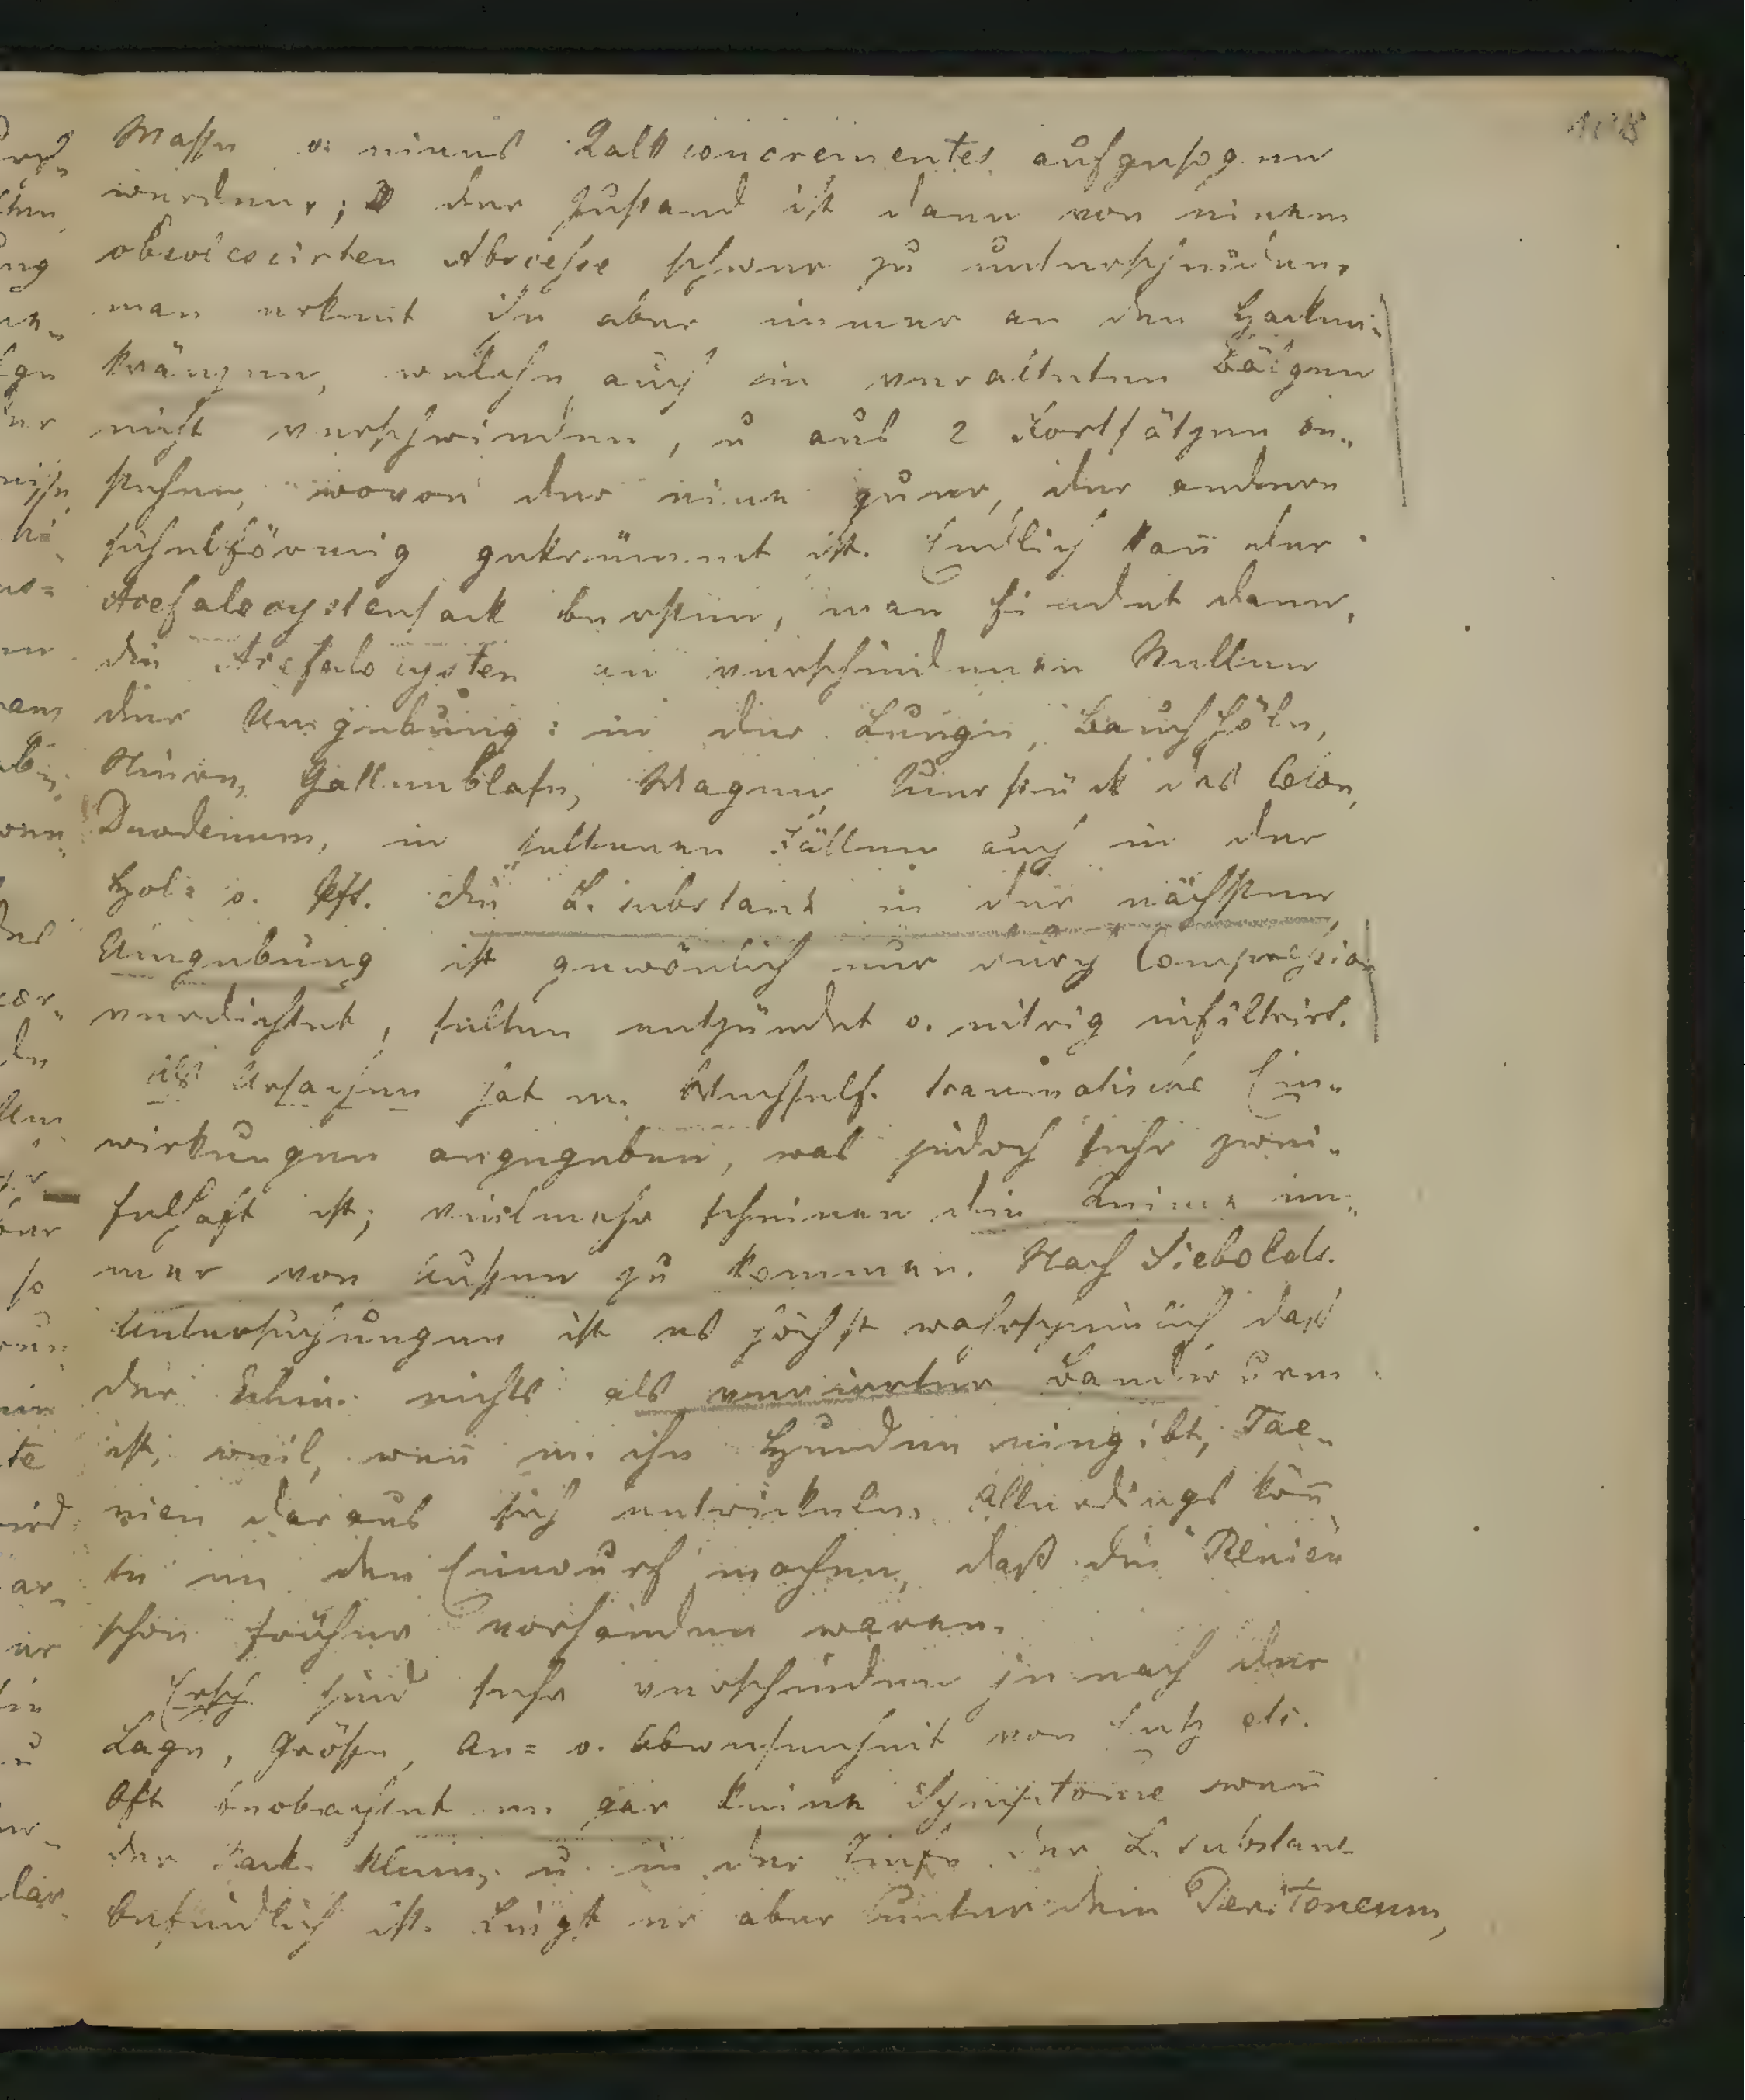 Masse o. eines Kalkconcrementes aufgesogen
werden; der Zustand ist dann von einem
obsolescirten Abscesse schwer zu unterscheiden,
man erkennt ihn aber immer an den Hacken-
kränzen, welche auch in veralteten Bälgen
nicht verschwinden, u aus 2 Fortsätzen be-
stehen, wovon der eine quer, der andere
sichelförmig gekrümmt ist. Endlich kañ der
Acefalocystensack bersten, man findet dann,
die Acefalocysten an verschiedenen Stellen
der Umgebung: in der Lunge, Bauchhöle,
Niere, Gallenblase, Magen, Querstück des Colon,
Duodenum, in seltenen Fällen auch in der
Hol= o. Pft. die L. substanz in der nächsten
Umgebung ist gewönlich nur durch Compression
verdichtet, selten entzündet o. eitrig infiltrirt.
Als Ursachen hat m. traumatische Ein-
wirkungen angegeben, was jedoch sehr zwei-
felhaft ist; vielmehr scheinen die Keime im-
mer von aussen zu kommen. Nach Siebolds
Untersuchungen ist es höchst wahrscheinlich daß
der Echin. nichts als verirrter Bandwurm
ist, weil, weñ m. ihn Hunden eingibt, Tae-
nien daraus sich entwickeln. Allerdings köñ
te m. den Einwurf machen, daß die
schon früher vorhanden waren.
Ersch. sind sehr verschieden je nach der
Lage, Grösse, An= o. Abwesenheit von Entz etc.
Oft beobachtet m. gar keine Symptome weñ
der Sack klein, u. in der Tiefe der L. substanz
befindlich ist. Liegt er aber unter dem Peritoneum,